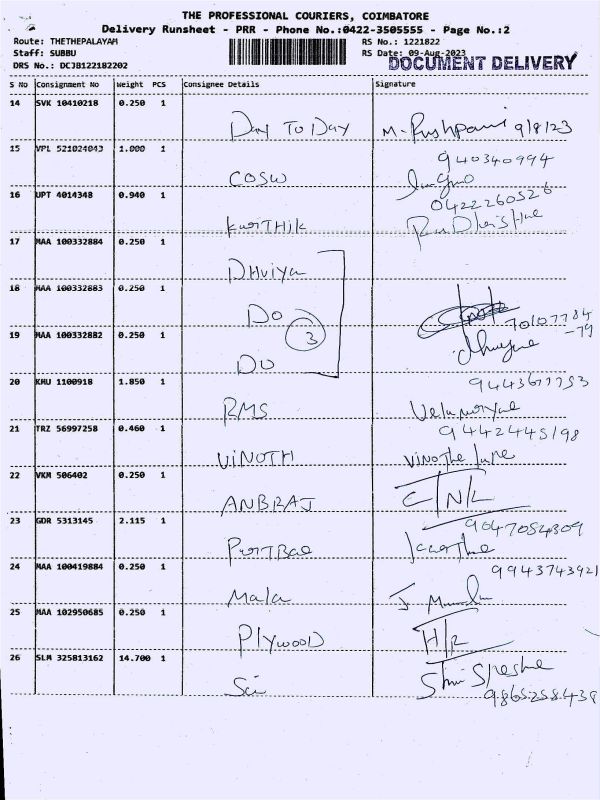 THE PROFESSIONAL COURIERS, COIMBATORE
Delivery Runsheet - PRR - Phone No.:0422-3505555 - Page No.:2
Route: THETHEPALAYAM RS No.: 1221822
Staff: SUBBU RS Date: 09-Aug-2023
DRS No.: DCJB122182202 DOCUMENT DELIVERY
S No Consignment No Weight PCS Consignee Details Signature
14 SVK 10410218 0.250 1
Day To Day M. Pushpami 9/8/23
15 VPL 521024043 1.000 1 940340994
COSW
16 UPT 4014348 0.940 1 0422260526
KarThik
17 MAA 100332884 0.250 1
DHviya
18 MAA 100332883 0.250 1
Do 70107784
3 -79
19 MAA 100332882 0.250 1
Do
20 KMU 1100918 1.850 1 9443677753
RMS
21 TRZ 56997258 0.460 1 9442445198
ViNOTH
22 VKM 506402 0.250 1
ANBRAJ
23 GDR 5313145 2.115 1 9047084309
24 MAA 100419884 0.250 1 9943743921
Mala
25 MAA 102950685 0.250 1
Plywood H/R
26 SLM 325813162 14.700 1
Sri
9865258438